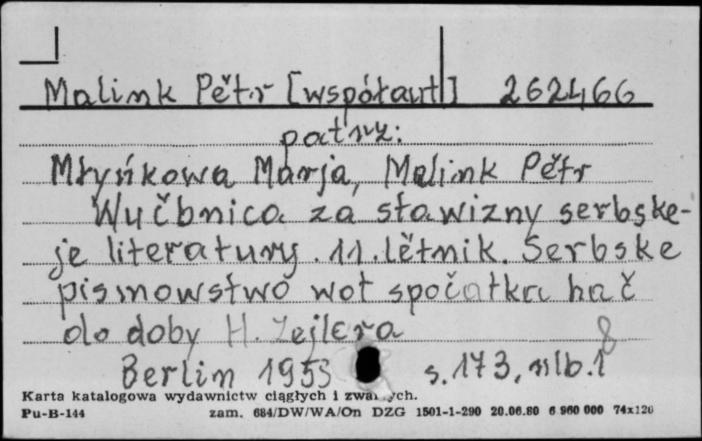 Malink Pětr [współaut] 262466
patrz:
Młyńkowa Marja, Malink Pětr
Wučbnica za stawizny serbske-
je literatury. 11. lětnik. Serbske
pismowstwo wot spočatka hač
do doby H. Zejlera
8
Berlin 1953 s. 173, nlb. 1
Karta katalogowa wydawnictw ciągłych i zwartych.
Pu-B-144 zam. 684/DW/WA/On DZG 1501-1-290 20.06.80 6 960 000 74x120